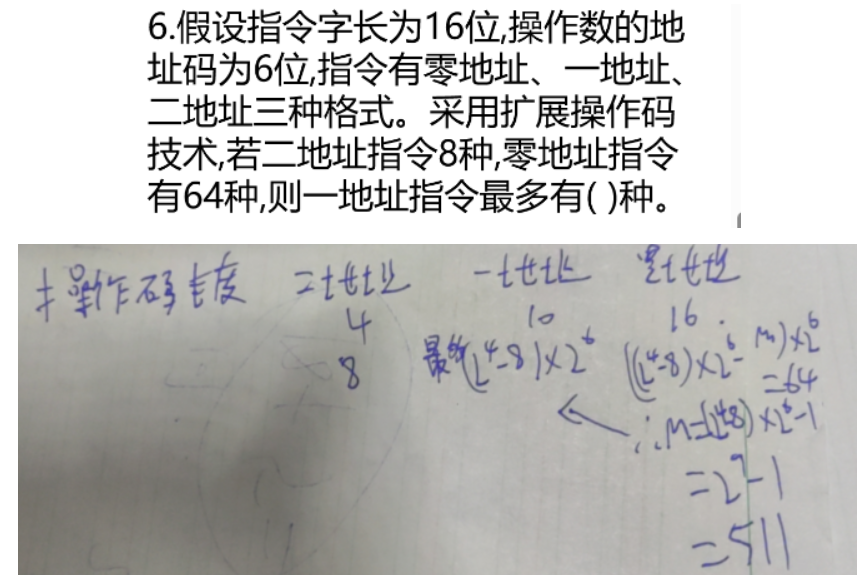 6.假设指令字长为16位,操作数的地
址码为6位,指令有零地址、一地址、
二地址三种格式。采用扩展操作码
技术,若二地址指令8种,零地址指令
有64种,则一地址指令最多有( )种。
操作码长度 二地址 一地址 零地址
4 10 16
8 最多(2⁴-8)×2⁶ ((2⁴-8)×2⁶-m)×2⁶
=64
∴m=(2⁴-8)×2⁶-1
=2⁹-1
=511